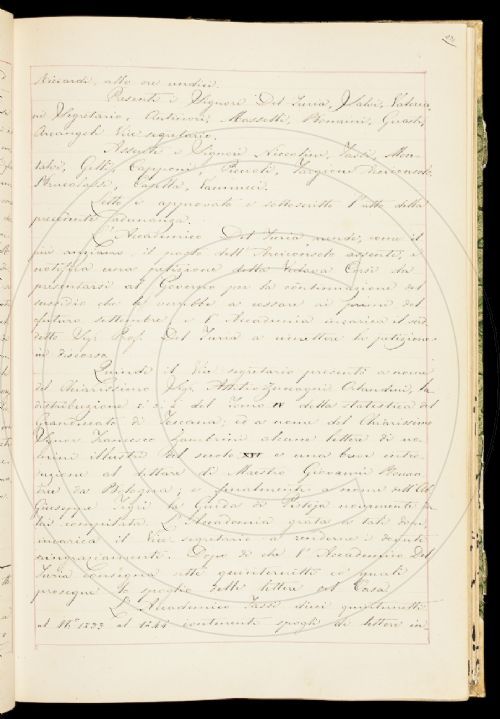 Riccardi, alle ore undici.
Presenti i Signori Del Furia, Salvi, Valeria-
ni Segretario, Bonaini, Guasti,
Arcangeli Vice segretario.
Assenti i Signori Tassi, Mon-
talvi, Capponi, Targioni Arciconsolo,
Casella, Vannucci.
Letto è approvato e sottoscritto l'atto della
precedente adunanza.
L'Accademico Del Furia avendo, come il
più anziano, il posto dell'Arciconsolo assente,
notifica una petizione della Vedova da
presentarsi al Governo per la continuazione del
sussidio che le verrebbe a cessare ai primi del
futuro settembre, e l'Accademia incarica il sud-
detto Sigr Prof. Del Furia a umettere la petizione
in discorso.
Quindi il Vice segretario presentò a nome
del Chiarissimo Sigr Attilio Zuccagni Orlandini, la
distribuzione e del Tomo IV della statistica del
Granducato di Toscana; ed a nome del Chiarissimo
Signor Francesco Zambrini alcune lettere di uo-
mini illustri del secolo XVI e una breve intro-
duzione al dittare di Maestro Giovanni Bonan-
drea da Bologna; e finalmente a nome dell'Ab.
Giuseppe Tigri la Guida di Pistoja nuovamente da
lui compilata. L'Accademia grata a tali doni,
incarica il Vice segretario a renderne i dovuti
ringraziamenti. Dopo di che l'Accademico Del
Furia consegna sette quinternetti co' quali
prosegue lo spoglio delle lettere del Casa.
L'Accademico Tassi dieci quinternetti
al N.o 1233 al 1244 contenenti spogli di lettere in